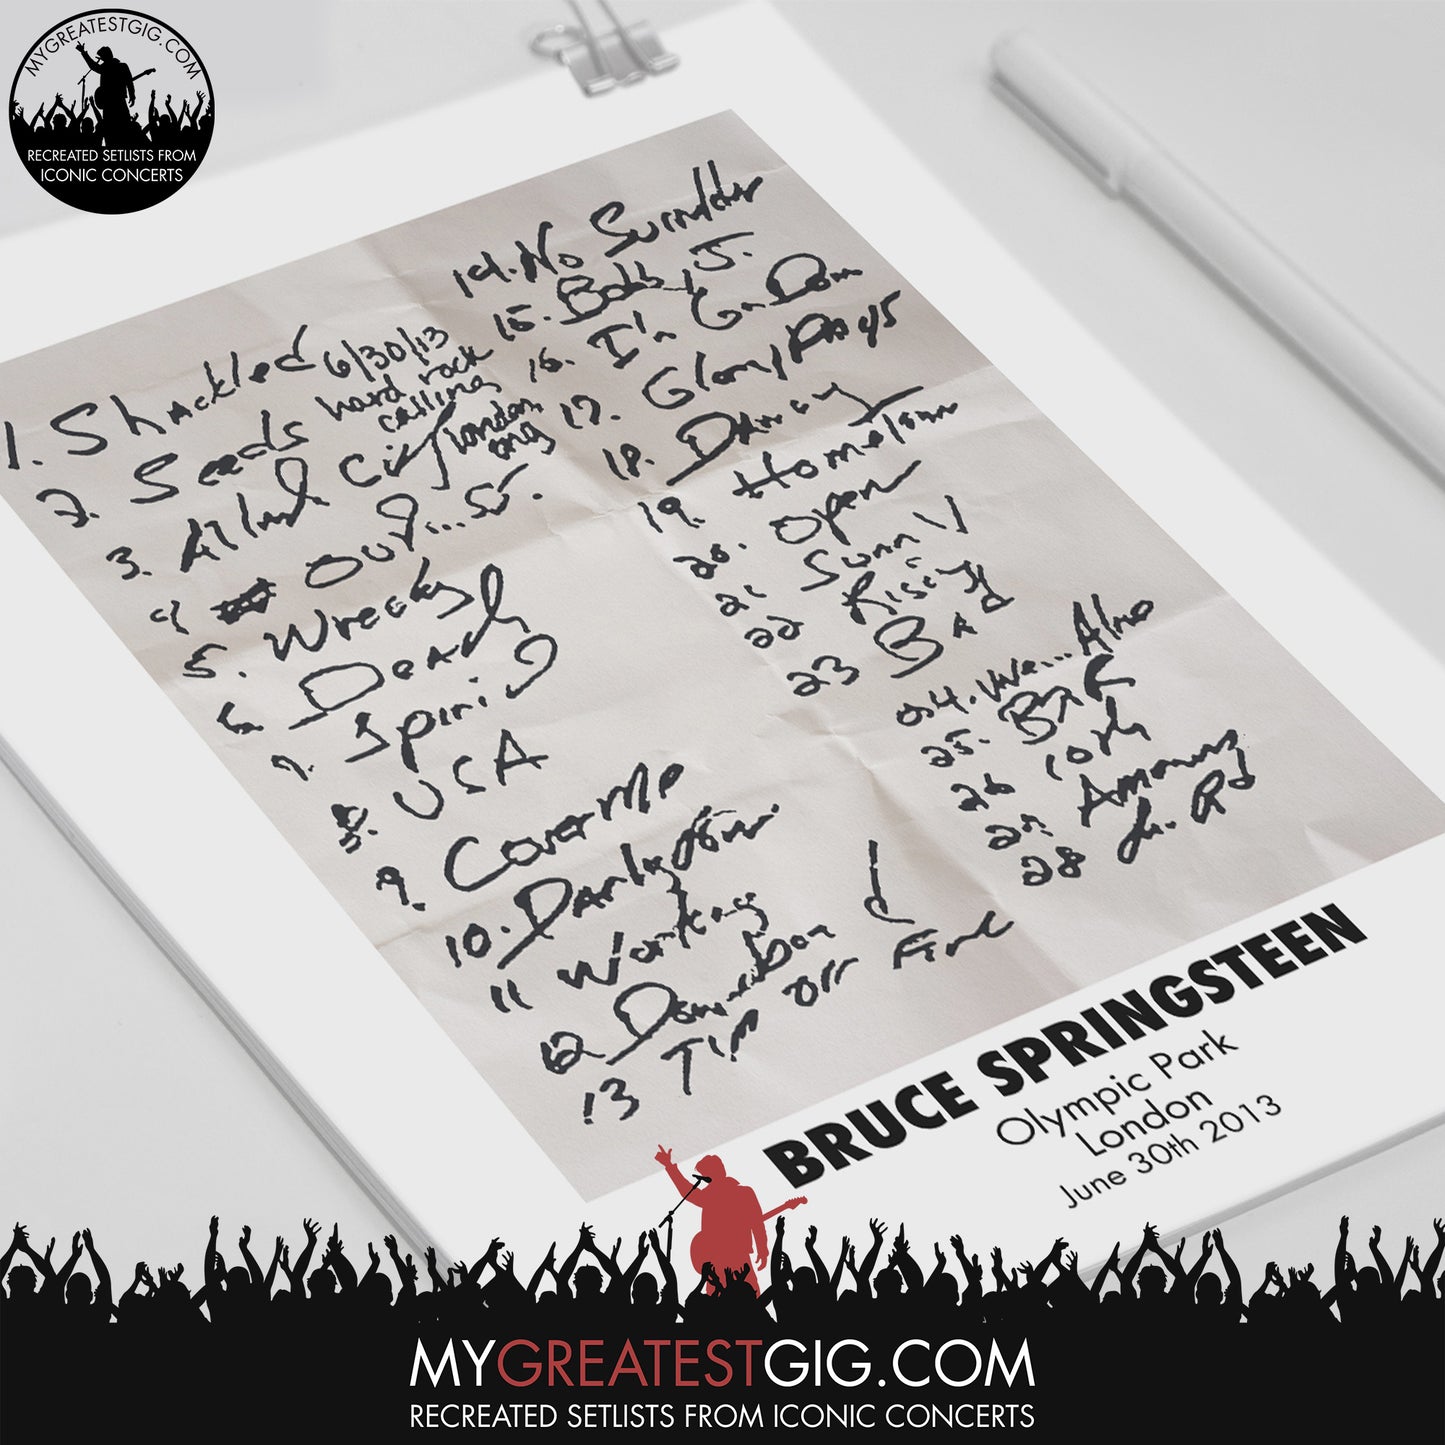 MYGREATESTGIG.COM
RECREATED SETLISTS FROM
ICONIC CONCERTS
1. Shackled 6/30/13
2. Seeds hard rock
calling
3. Atland City london
eng
4 Our...S.
5. Wrecky
6. Death
7. Spirit
8. USA
9. Cover Me
10. Darkness
11 Working
12. Downbou d
13 Tip Off Fire
14. No Surrender
15. Bobby J.
16. I'm Gn Down
17. Glory Days
18. Dancing
19. Hometown
20. Open
21 Sunny
22 Rising
23 Bad
24. We...Alive
25. Bor R
26 10th
27. American
28 Ju. Rd
BRUCE SPRINGSTEEN
Olympic Park
London
June 30th 2013
MYGREATESTGIG.COM
RECREATED SETLISTS FROM ICONIC CONCERTS